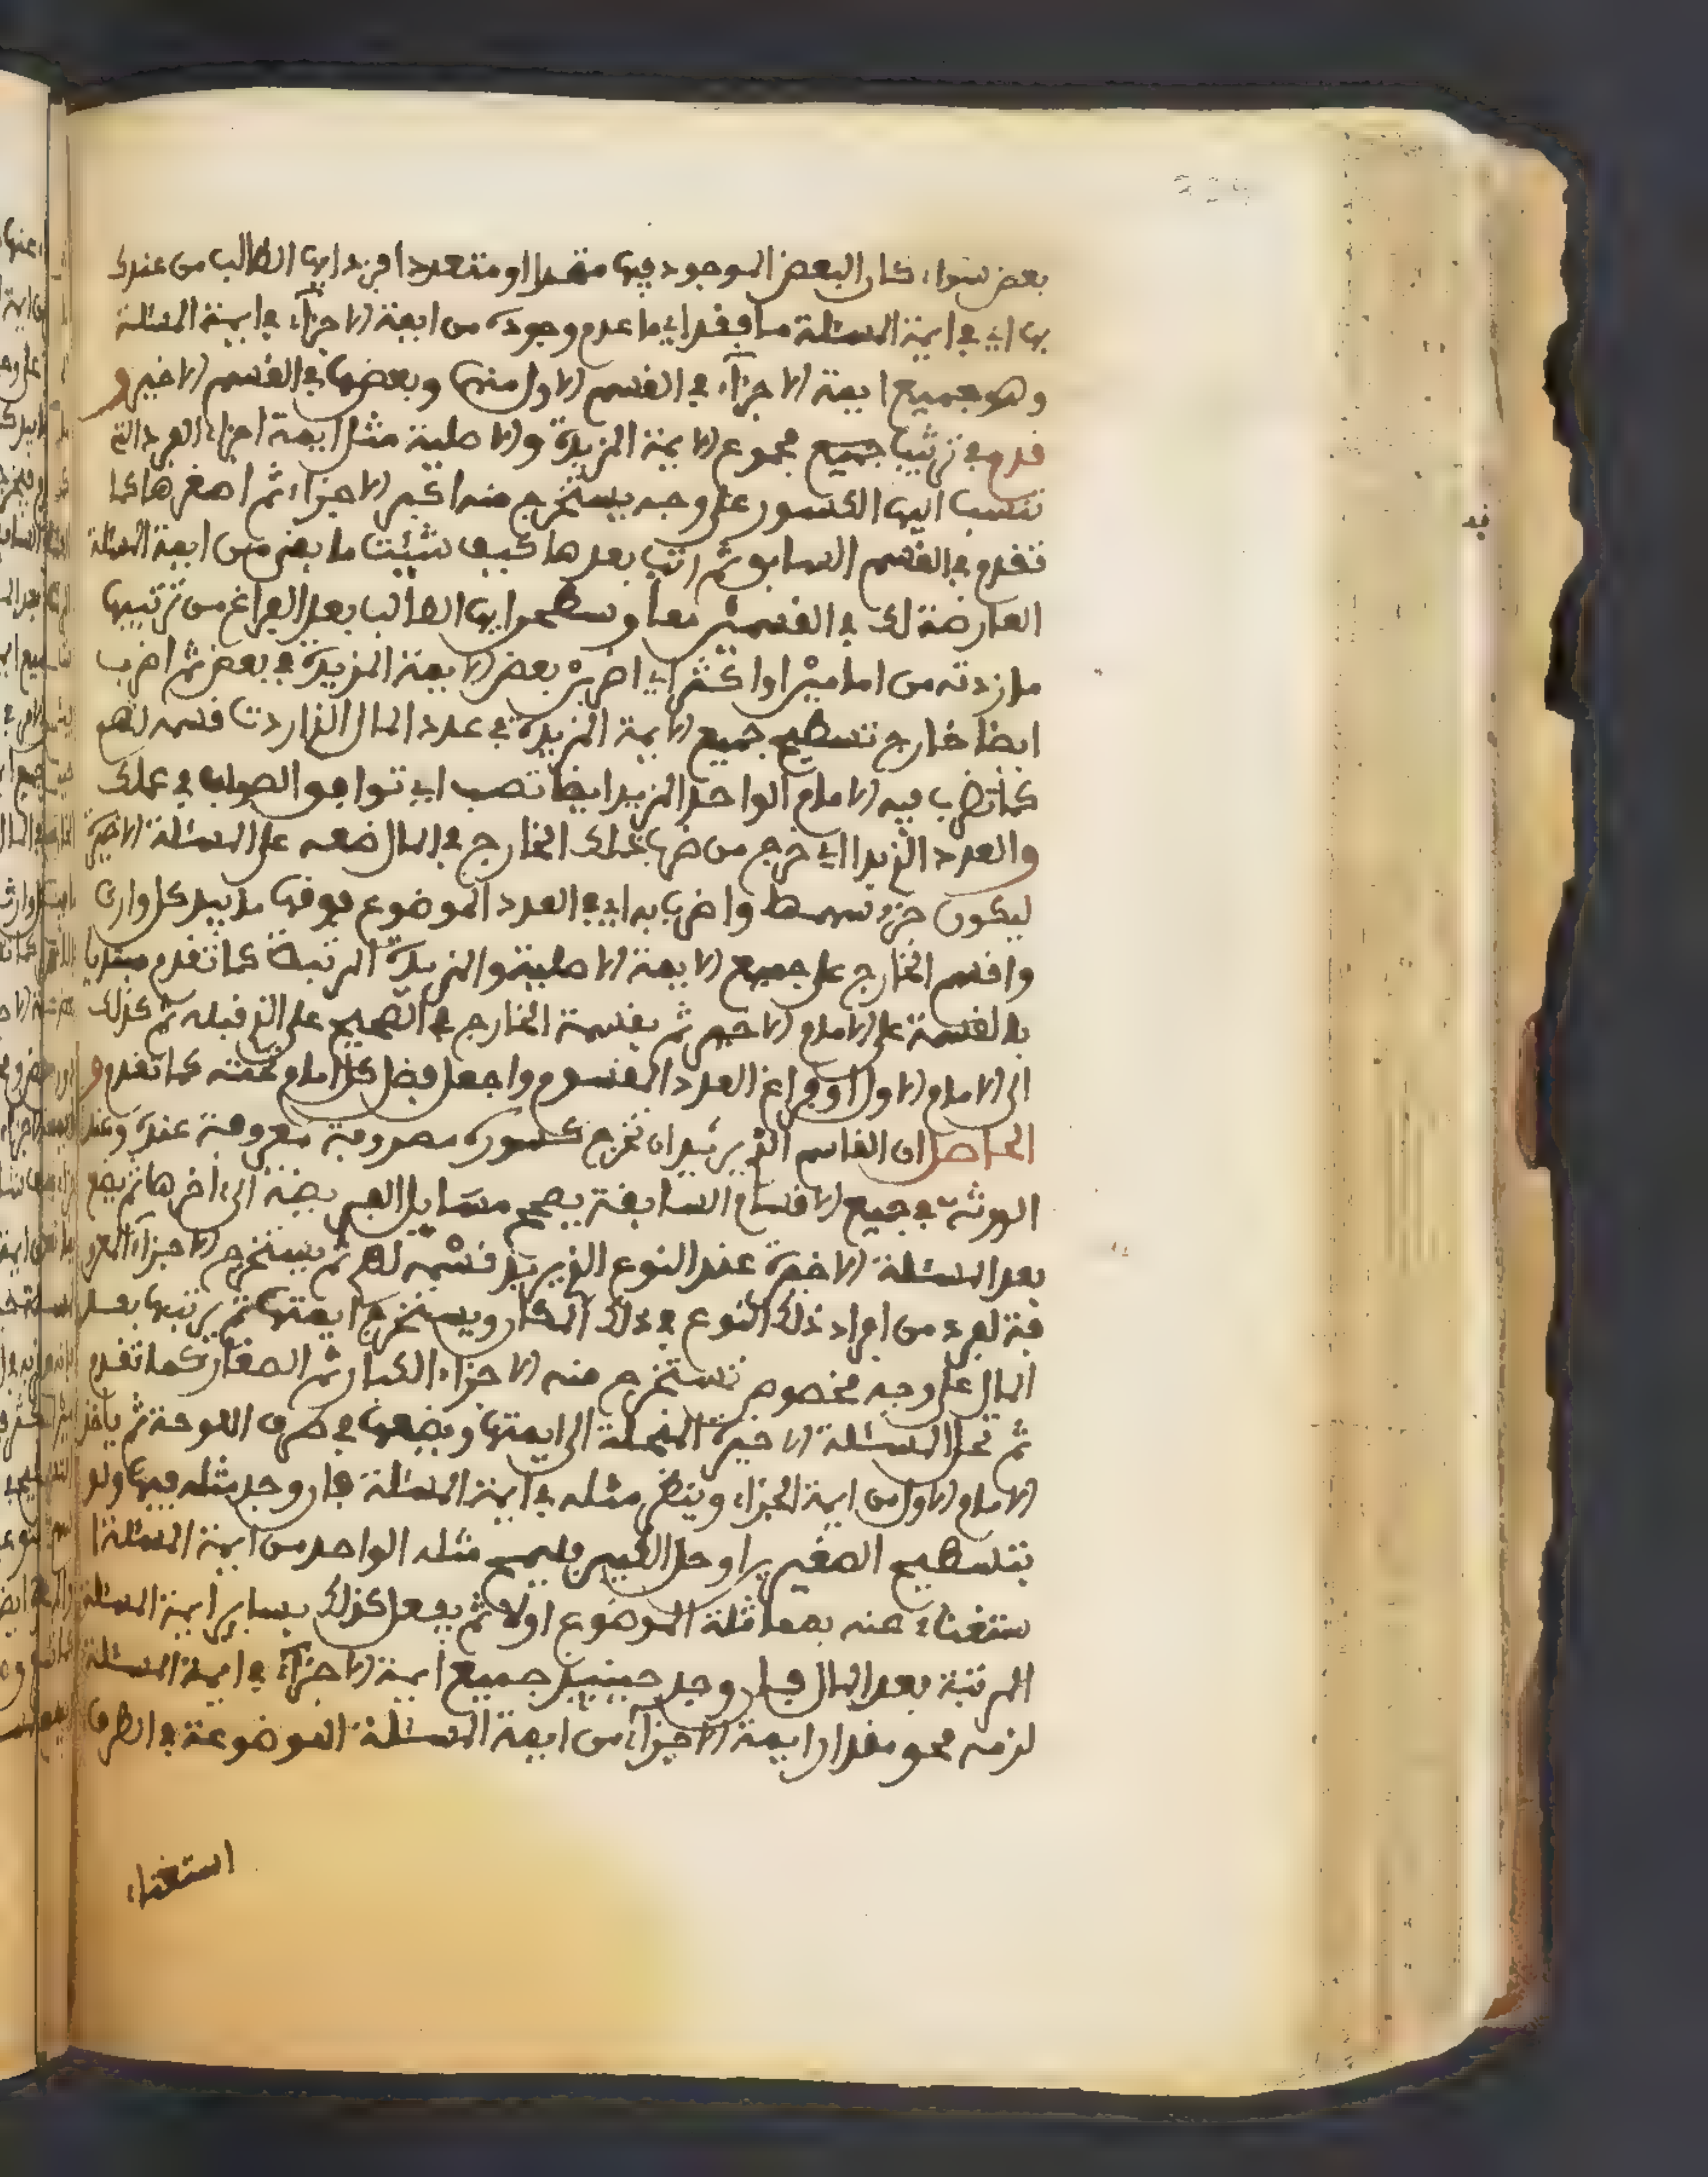 بعض سواء كان البعض الموجود فيها متحدا او متعددا فزد ايها الطالب من عندك
بها اي في ايمة المسئلة ما فقد اي ما عدم وجوده من ايمة الاجزآء في ايمة المسئلة
وهو جميع ايمة الاجزآء في القسم الاول منها وبعضها في القسم الاخير و
قدم في ترتيب جميع مجموع الايمة المزيدة والاصلية مثل ايمة اجزاء العدد التي
تنسب اليها الكسور على وجه يستخرج منه اكبر الاجزاء ثم اصغرها كما
تقدم في القسم السابق ثم رتب بعدها كيف شئت ما بقي من ايمة المسئلة
العارضة لك في القسمين معا وسطحوا ايها الطالب بعد الفراغ من ترتيبها
ما زدته من امامين او اكثر اي اضرب بعض الايمة المزيدة في بعض ثم اضرب
ايضا خارج تسطيح جميع الايمة المزيدة في عدد المال الذي اردت قسمه لهم
كما تضرب فيه الامام الواحد المزيد ايضا تصب اي توافق الصواب في عملك
والعدد الذي بدا اي خرج من ضرب ذلك الخارج في المال ضعه على المسئلة الاخيرة
ليكون جزء سهمها واضرب به اي في العدد الموضوع فوقها ما بيد كل وارث
واقسم الخارج على جميع الايمة الاصلية والمزيدة المرتبة كما تقدم مبتديا
بالقسمة على الامام الاخير ثم بقسمة الخارج في الصحيح على الذي قبله ثم كذلك
الى الامام الاول او فراغ العدد المقسوم واجعل فضل كل امام تحته كما تقدم و
الحاصل ان القاسم الذي يريد ان تخرج كسوره مصروفة معروفة عنده وعند
الورثة في جميع الاقسام السابقة يصحح مسايل الفريضة الى اخرها ثم يضع
بعد المسئلة الاخيرة عند النوع الذي يريد قسمه لهم ثم يستخرج الاجزآء العر
فية لفرد من افراد ذلك النوع في ذلك المكان ويستخرج ايمتها ثم يرتبها بعد
المال على وجه مخصوص تستخرج منه الاجزاء الكبار ثم الصغار كما تقدم
ثم تحل المسئلة الاخيرة المنحلة الى ايمتها ويضعها في طرف اللوحة ثم ياخذ
الامام الاول من ايمة الجزاء وينظر مثله في ايمة المسئلة فان وجد مثله فيها ولو
بتسطيح الصغيرين او حل الكبير فليمح مثله الواحد من ايمة المسئلة ا
ستغناء عنه بمماثلة الموضوع اولا ثم يفعل كذلك بساير ايمة المسئلة
المرتبة بعد المال فان وجد حينئذ جميع ايمة الاجزآء في ايمة المسئلة
لزمه محو مقدار ايمة الاجزآء من ايمة المسئلة الموضوعة في الطرف
استغناء